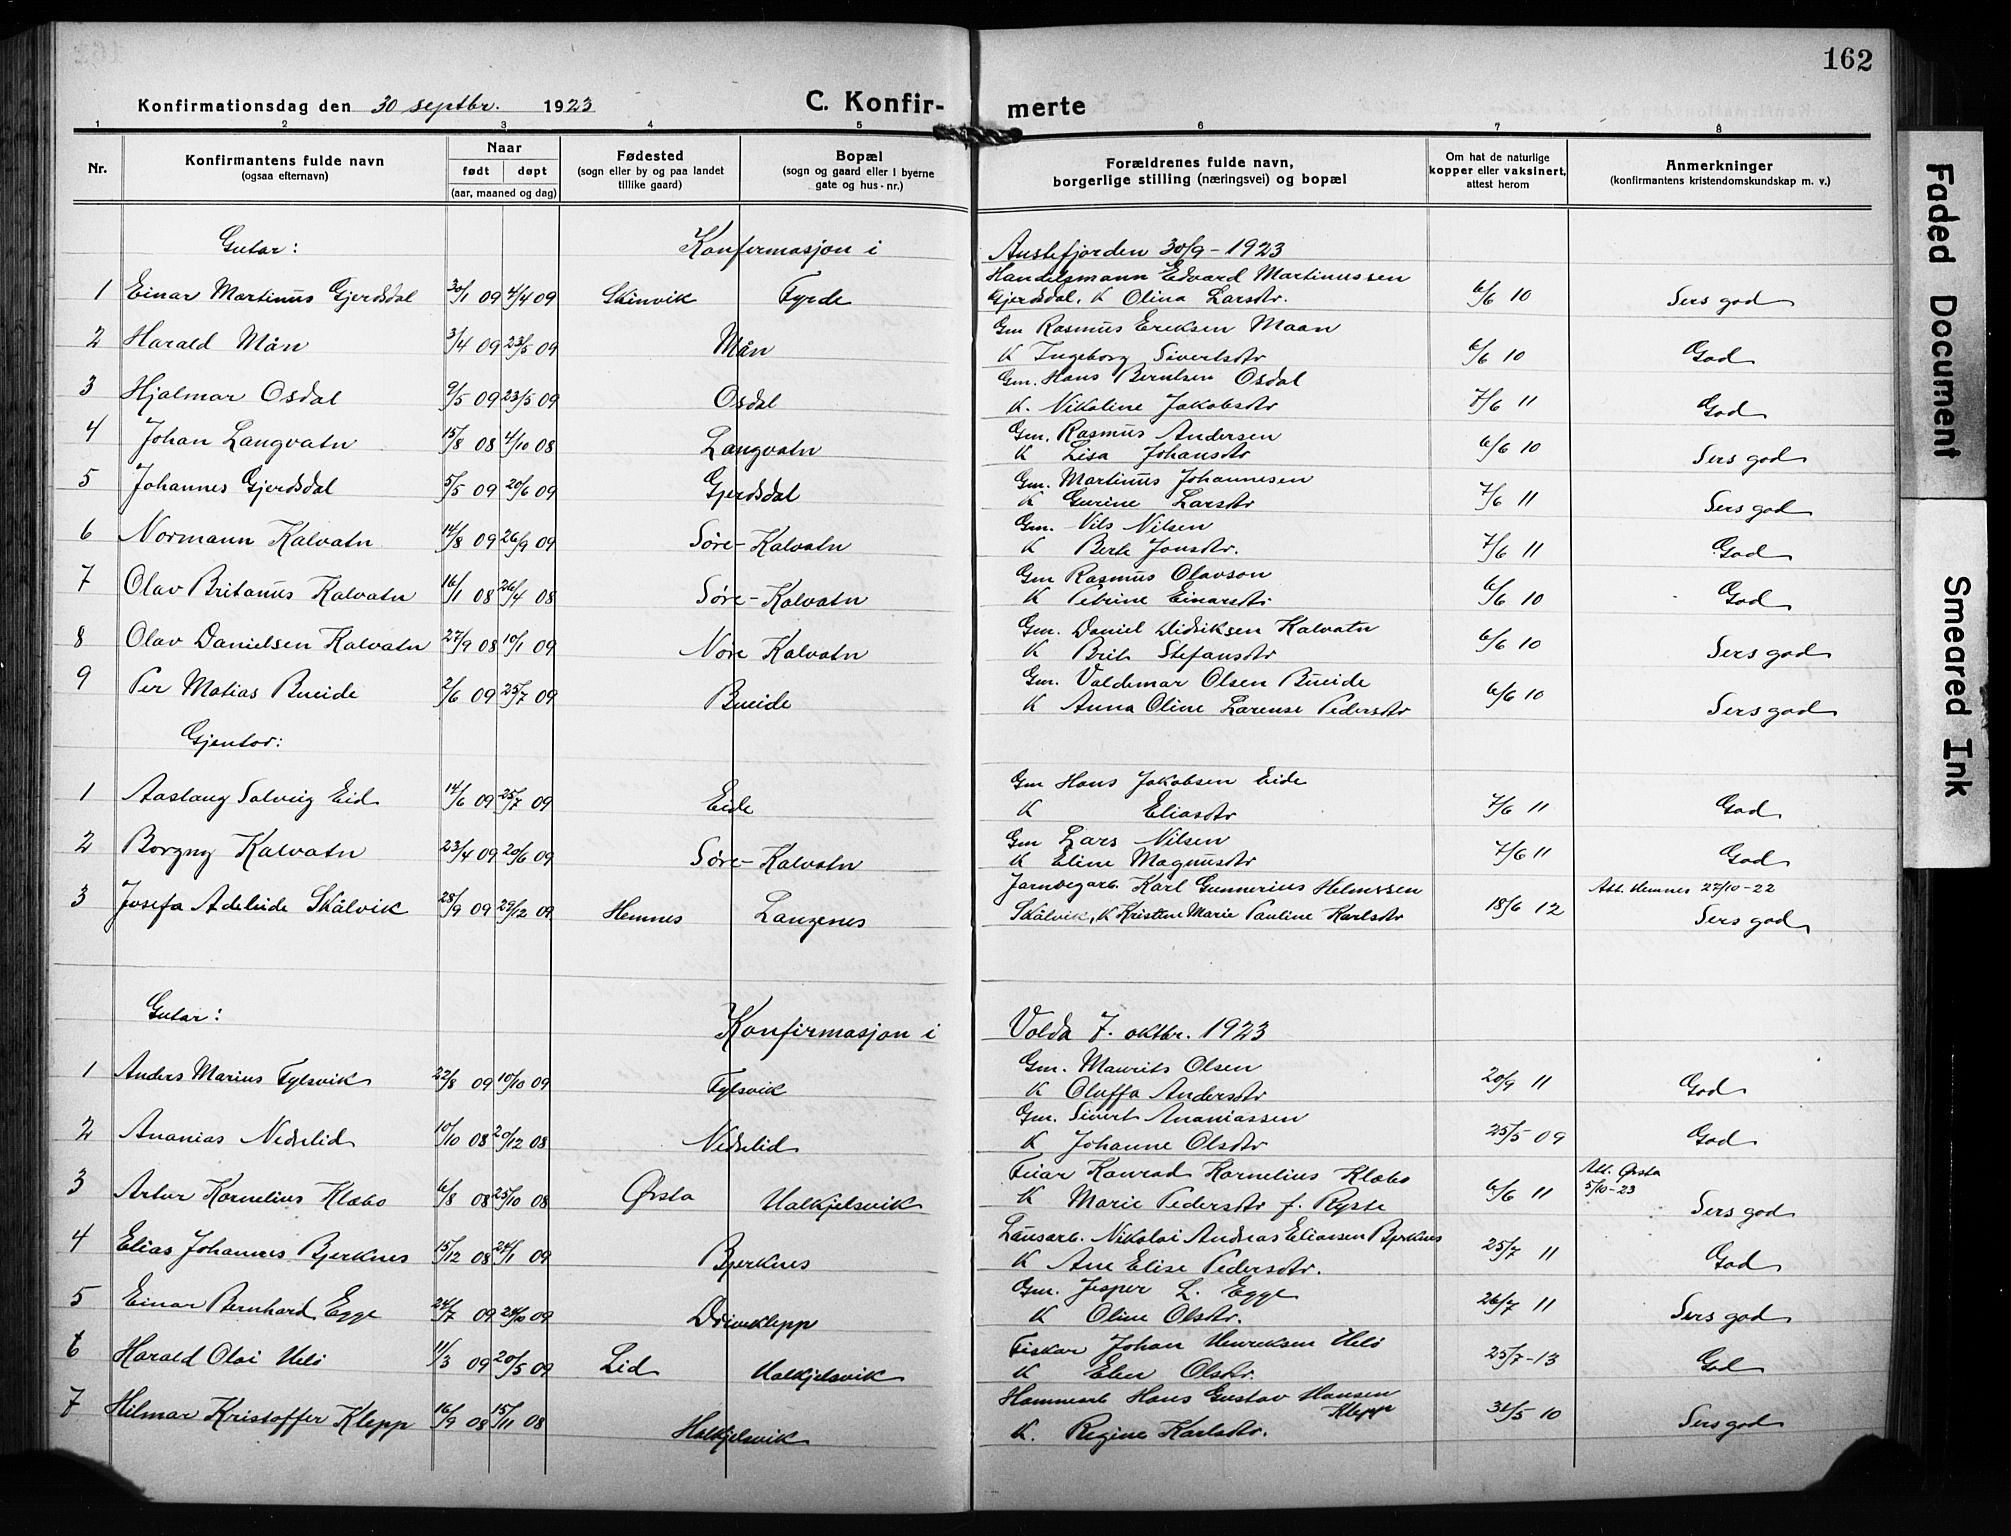 162
Konfirmationsdag den 30 septbr. 1923 C. Konfir- merte
1 2 3 4 5 6 7 8
Nr. Konfirmantens fulde navn (ogsaa efternavn) Naar født døpt (aar, maaned og dag) Fødested (sogn eller by og paa landet tillike gaard) Bopæl (sogn og gaard eller i byerne gate og hus-nr.) Forældrenes fulde navn, borgerlige stilling (næringsvei) og bopæl Om hat de naturlige kopper eller vaksinert, attest herom Anmerkninger (konfirmantens kristendomskundskap m. v.)
Gutar: Konfirmasjon i Austefjorden 30/9 - 1923
Handelsmann Edvard Martinussen
1 Einar Martinus Gjerdsdal 30/1 09 4/4 09 Skinvik Fyrde Gjerdsdal, K Olina Larsdtr. 6/6 10 Sers god
Gm Rasmus Eriksen Maan
2 Harald Mån 3/4 09 23/5 09 Mån K Ingeborg Sivertsdtr 6/6 10 God
Gm. Hans Berntsen Osdal
3 Hjalmar Osdal 9/5 09 23/5 09 Osdal K. Nikoline Jakobsdtr 7/6 11 God
Gm. Rasmus Andersen
4 Johan Langvatn 15/8 08 4/10 08 Langvatn K Lisa Johansdtr 6/6 10 Sers god
Gm. Martinus Johannesen
5 Johannes Gjerdsdal 5/5 09 20/6 09 Gjerdsdal K Gurine Larsdtr 7/6 11 Sers god
Gm. Nils Nilsen
6 Normann Kalvatn 14/8 09 26/9 09 Søre-Kalvatn K Berte Jonsdtr. 7/6 11 God
Gm Rasmus Olavson
7 Olav Britanus Kalvatn 16/1 08 26/4 08 Søre-Kalvatn K Petrine Einarsdtr 6/6 10 God
Gm. Daniel Didriksen Kalvatn
8 Olav Danielsen Kalvatn 27/9 08 10/1 09 Nøre Kalvatn K Brit Stefansdtr 6/6 10 Sers god
Gm. Valdemar Olsen Bueide
9 Per Matias Bueide 2/6 09 25/7 09 Bueide K Anna Oline Larense Pedersdtr 6/6 10 Sers god
Gjentor:
Gm Hans Jakobsen Eide
1 Aaslaug Solveig Eid 14/6 09 25/7 09 Eide K Eliasdtr 7/6 11 God
Gm Lars Nilsen
2 Borgny Kalvatn 23/4 09 20/6 09 Søre-Kalvatn K Eline Magnusdtr 7/6 11 God
Jarnvegarb. Karl Gunnerius Helmersen Att. Hemnes 27/10-22
3 Josefa Adeleide Skålvik 28/9 09 29/12 09 Hemnes Langenes Skålvik, K Kristine Marie Pauline Karlsdtr 18/6 12 Sers god
Gutar: Konfirmasjon i Volda 7. oktbr. 1923
Gm. Maurits Olsen
1 Anders Marius Fylsvik 22/8 09 10/10 09 Fylsvik K Oluffa Andersdtr 20/9 11 God
Gm. Sivert Ananiassen
2 Ananias Nedrelid 10/10 08 20/12 08 Nedrelid K Johanne Olsdtr 25/5 09 God
Feiar Konrad Kornelius Klæbo Att. Ørsta 5/10-23
3 Artur Kornelius Klæbo 6/8 08 25/10 08 Ørsta Halkjelsvik K Marie Pedersdtr f. Ryste 6/6 11 Sers god
Lausarb. Nikolai Andreas Eliassen Bjerknes
4 Elias Johannes Bjerknes 15/12 08 24/1 09 Bjerknes K Ane Elise Pedersdtr. 25/7 11 God
Gm. Jesper L. Egge
5 Einar Bernhard Egge 24/7 09 24/10 09 Driveklepp K Oline Olsdtr. 26/7 11 Sers god
Fiskar Johan Henriksen Helö
6 Harald Olai Helö 11/3 09 20/5 09 Lid Halkjelsvik K Elen Olsdtr. 25/7-13 God
Hammarb Hans Gustav Hansen Klepp
7 Hilmar Kristoffer Klepp 16/9 08 15/11 08 Halkjelsvik K. Regine Karlsdtr. 31/5 10 Sers god
Faded Document
Smeared Ink